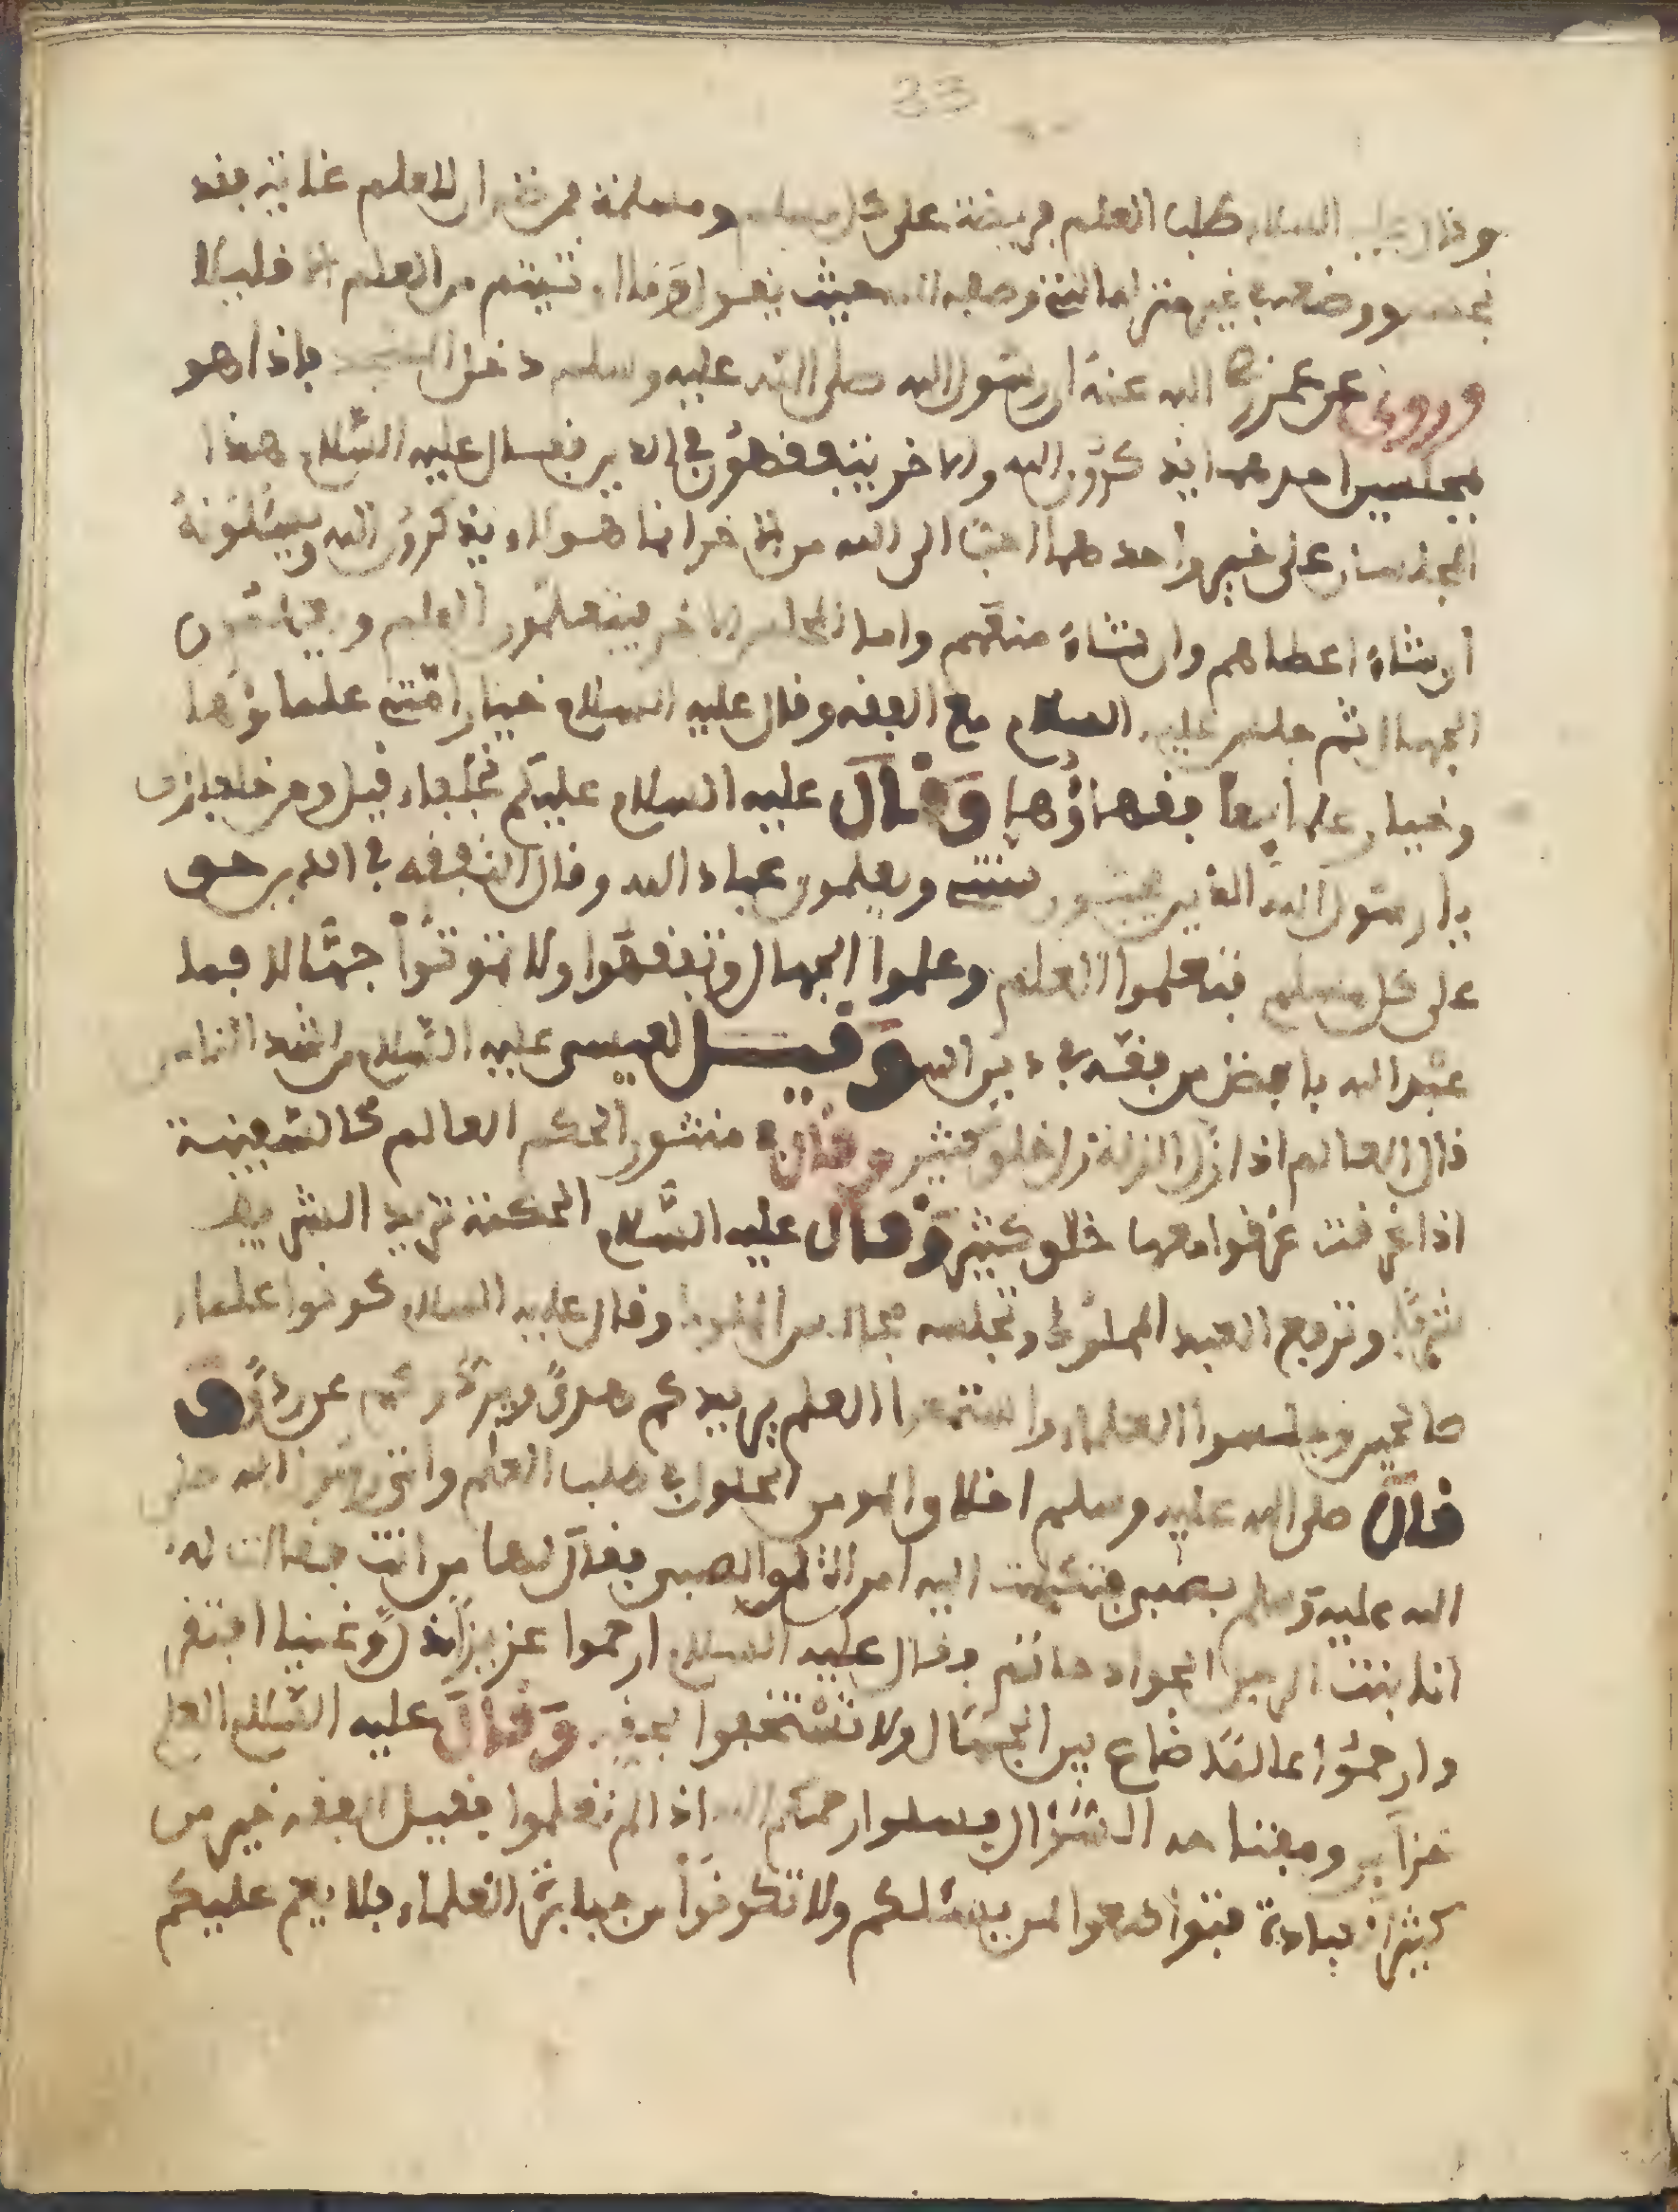 33
وقال عليه السلام طلب العلم فريضة على كل مسلم ومسلمة فمن ظن ان للعلم غاية فقد
بخسه ووضعه في غير منزلته التي وصفه الله حيث يقول وما اوتيتم من العلم الا قليلا
وروي عن عمر رضي الله عنه ان رسول الله صلى الله عليه وسلم دخل المسجد فاذا هو
بمجلسين احدهما يذكرون الله والاخر يتفقهون في الدين فقال عليه السلام هذا
المجلسان على خير واحدهما احب الى الله من الاخر اما هولاء يذكرون الله ويسئلونه
ان شاء اعطاهم وان شاء منعهم واما المجلس الاخر يتعلمون العلم ويعلمون
الجهال ثم جلس عليه السلام مع الفقه وقال عليه السلام خيار امتي علماؤها
وخيار علمايها فقهاؤها وقال عليه السلام عليكم بخلفاء قيل ومن خلفاؤك
يا رسول الله الذين يحيون سنتي ويعلمون عباد الله وقال التفقه في الدين حق
على كل مسلم فتعلموا العلم وعلموا الجهال وتفقهوا ولا تموتوا جهالا فما
عبد الله بافضل من فقه في دين الله وقيل لعيسى عليه السلام من اشد الناس
قال العالم اذا زل الزلة زل خلق كثير وقال في منشور الحكم العالم كالسفينة
اذا غرقت غرقوا معها خلق كثير وقال عليه السلام الحكمة تزيد الشريف
شرفا وترفع العبد المملوك وتجلسه مجالس الملوك وقال عليه السلام كونوا علماء
صالحين وجالسوا العلماء واستمعوا العلم يزيدكم هدى ويردكم عن ردى
قال صلى الله عليه وسلم اخلاق المومن الملول في طلب العلم واتي رسول الله صلى
الله عليه وسلم بسبي فتكلمت اليه امراة من السبي فقال لها من انت فقالت له
انا بنت الرجل الجواد حاتم فقال عليه السلام ارحموا عزيزا ذل وغنيا افتقر
وارحموا عالما ضاع بين الجهال ولا تستخفوا بحقه وقال عليه السلام العلم
خزاين ومفتاحه السؤال فسلوا رحمكم الله اذا لم تعلموا فقليل الفقه خير من
كثير العبادة فتواضعوا لمن يسئلكم ولا تكونوا من جبابرة العلماء فلا يقم عليكم